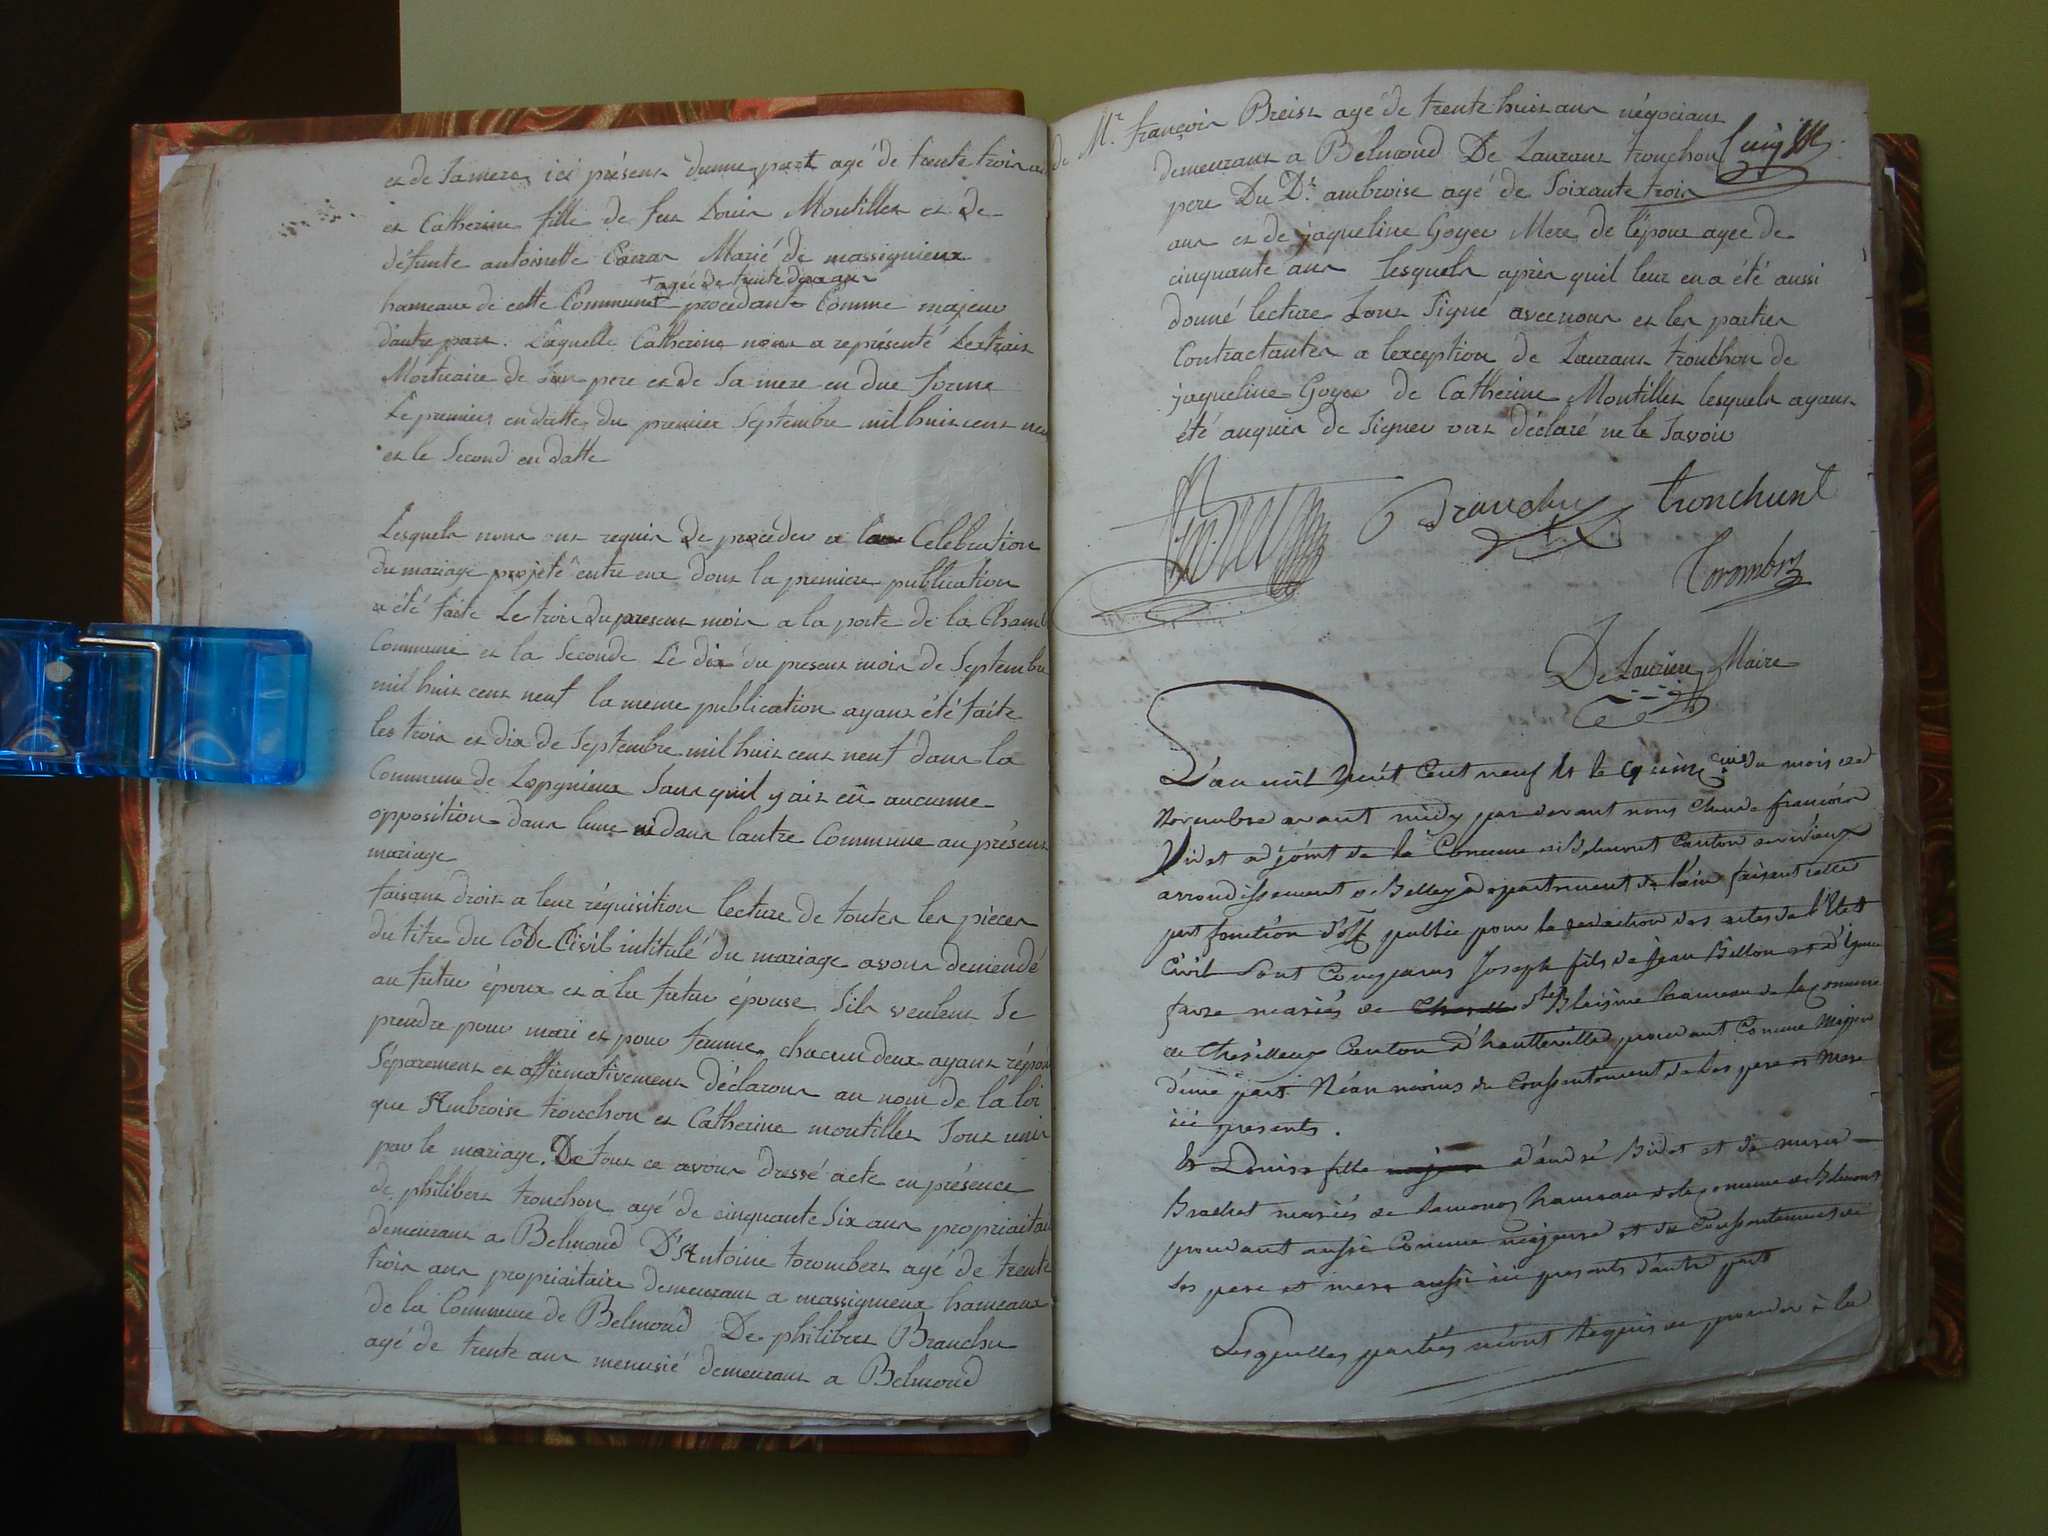 et de Sa mere, ici présent d'une part agé de trente trois
et Catherine fille de feu Louis Montillet et de
défunte antoinette Carrar Marié de massignieux
+ agée de trente deux ans
hameaux de cette Commune procedante Comme majeur
d'autre part. Laquelle Catherine nous a représenté Lextrait
Mortuaire de Son pere et de Sa mere en due forme
Le premier en datte du premier Septembre mil huit cent
et le Second en datte
Lesquels nous ont requis de proceder a la Célébration
du mariage projeté entre eux dont la premiere publication
a été faite Le trois du present mois a la porte de la
Commune et la Seconde Le dix du present mois de Septembre
mil huit cent neuf la meme publication ayant été faite
les trois et dix de Septembre mil huit cent neuf dans la
Commune de Sans quil y ait eû aucunne
opposition dans lune ni dans lautre Commune au présent
mariage
faisant droit a leur réquisition lecture de toutes les pièces
du titre du Code Civil intitulé du mariage avons demendé
au futur époux et à la futur épouse Sils veulent Se
prendre pour mari et pour femme, chacun deux ayant
Séparement et affirmativement déclarons au nom de la loi
que Ambroise tronchon et Catherine montillet Sont unis
par le mariage. De tout ce avons dressé acte en présence
de philibert tronchon agé de cinquante Six ans
demeurant a Belmond D'Antoine torombert agé de trente
trois ans propriaitaire demeurant a massignieux hameaux
de la Commune de Belmond De philibert Branchu
agé de trente ans menusié demeurant a Belmond
de Mr. françois Breist agé de trente huit ans négociant
demeurant a Belmond De Laurant tronchon
pere Du Dt. ambroise agé de Soixante trois
ans et de jaqueline Goyet Mere de lépoux agee de
cinquante ans Lesquels après quil leur en a été aussi
donné lecture Sont Signé avec nous et les parties
Contractantes a lexception de Laurant tronchon de
jaqueline Goyet de Catherine Montillet lesquels ayant
été auquis de Signer ont déclaré ne le Savoir
Branchu tronchunt
Torombert
De Lauriere Maire
L'an mil huit Cent neuf et le quinze du mois de
Novembre avant midy par devant nous Claude françois
Bidat adjoint de la Comune de Belmont Canton de virieux
arrondissement de Belley département de l'ain faisant
fonction d'off publie pour la redaction des actes de l'Etat
Civil Sont Comparus Joseph fils de Jean Billon et d'
favre mariés de Ste Blaisine hameau de la Comune
de Canton d'hautteville procedant Comme Majeur
d'une part Néan moins du Consentement de Ses pere et Mere
ici presents.
Et Louise fille d'andré Bidat et de
Brachet mariés de hameau de la Comune de Belmont
procedant aussi Comme majeure et du Consentement de
Ses pere et mere aussi ici presents d'autre part
Lesquelles parties m'ont requis de proceder à la